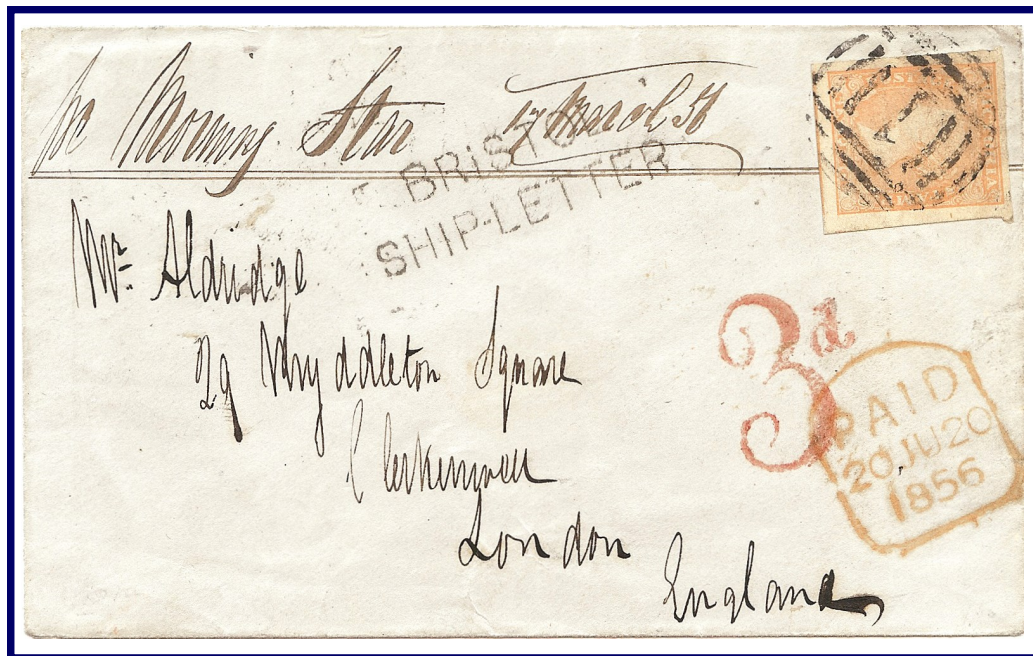 per Morning Star 17 March 56
BRISTOL
SHIP-LETTER
Mr. Aldridge
29 Myddleton Square
Clerkenwell
London
England
3d
PAID
20 JU 20
1856